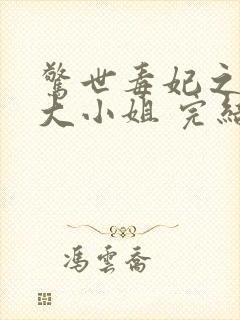 驚世毒妃之
大小姐 完結
馮雲喬